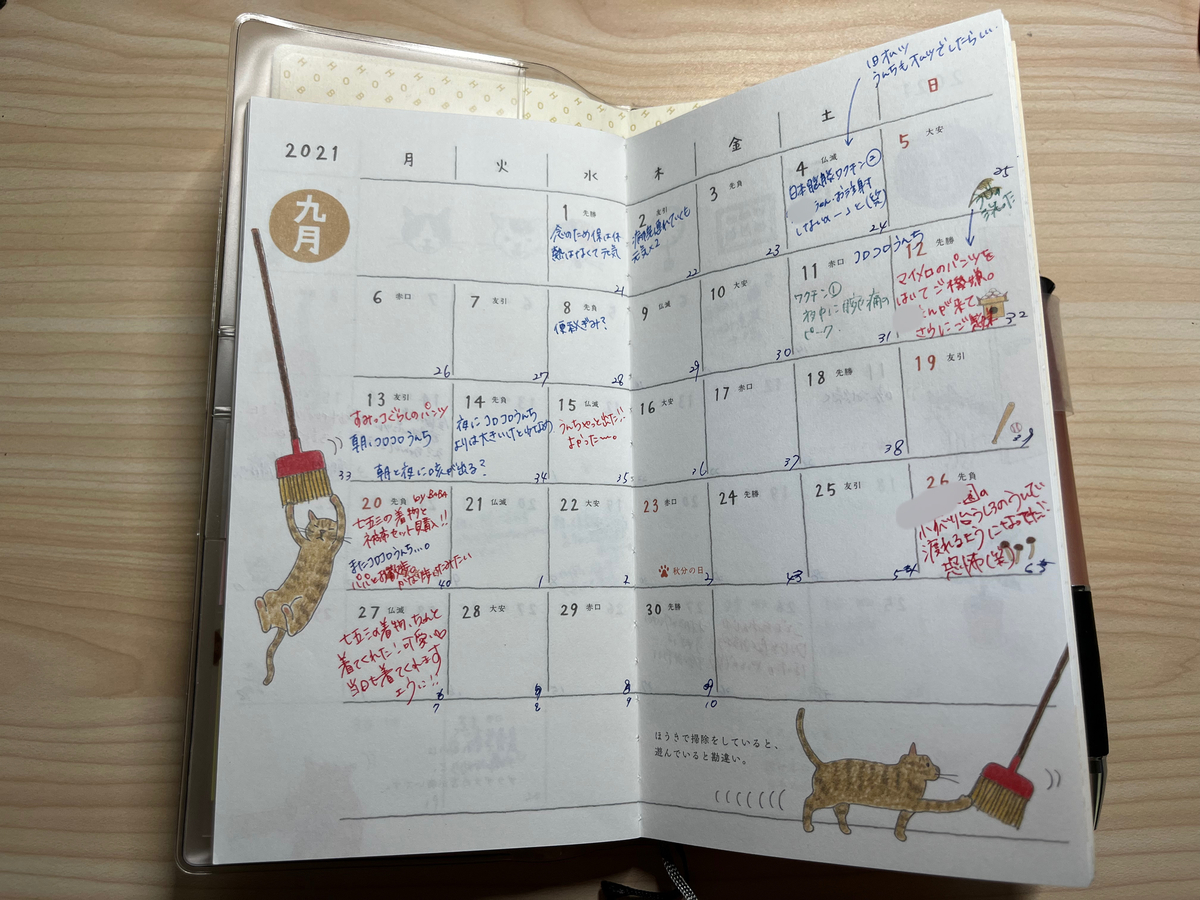 旧オムツ
うんちもオムツでしたらしい。
2021
九月
月
火
水
木
金
土
日
1 先勝
念のため保は休
熱はなくて元気
21
2 友引
元気×2
22
3 先負
23
4 仏滅
日本脳炎ワクチン②
うん、お注射
しないねーっと(笑)
24
5 大安
25
6 赤口
26
7 友引
27
8 先負
便秘ぎみ?
28
9 仏滅
29
10 大安
30
11 赤口
コロコロうんち
ワクチン①
夜中に腕痛の
ピーク
31
12 先勝
マイメロのパンツを
はいてご機嫌。
んが来て
さらにご機嫌
32
13 友引
すみっコぐらしのパンツ
朝にコロコロうんち
朝と夜に咳が出る?
33
14 先負
夜にコロコロうんち
よりは大きいけど少なめ
34
15 仏滅
うんちやっと出た!!
よかった〜。
35
16 大安
36
17 赤口
37
18 先勝
38
19 友引
39
20 先負
by BaBA
七五三の着物と
被布セット購入!!
またコロコロうんち…。
パパとお散歩。
40
21 仏滅
1
22 大安
2
23 赤口
秋分の日
3
24 先勝
25 友引
26 先負
小すべり台うしろのうんてい
渡れるようになってた!
恐怖(笑)
27 仏滅
七五三の着物、ちゃんと
着てくれた!可愛い
当日も着てくれます
ように!!
7
28 大安
8
29 赤口
9
30 先勝
10
ほうきで掃除をしていると、
遊んでいると勘違い。